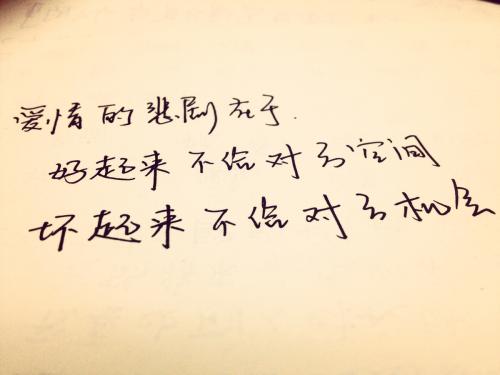 爱情的悲剧在于.
好起来不给对方空间
坏起来不给对方机会